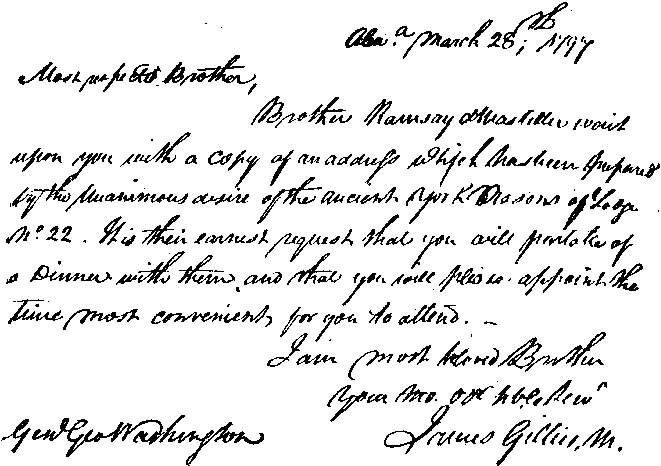 Alexa. March 28th, 1797
Most respectd. Brother,
Brother Ramsay & Marsteller wait
upon you with a copy of an address which has been prepared
by the Unanimous desire of the ancient York Masons of Lodge
No. 22. It is their earnest request that you will partake of
a Dinner with them, and that you will please appoint the
time most convenient for you to attend. –
I am most beloved Brother
Your Mo. Obt. hble. Servt
James Gillis, M.
Genl. Geo Washington